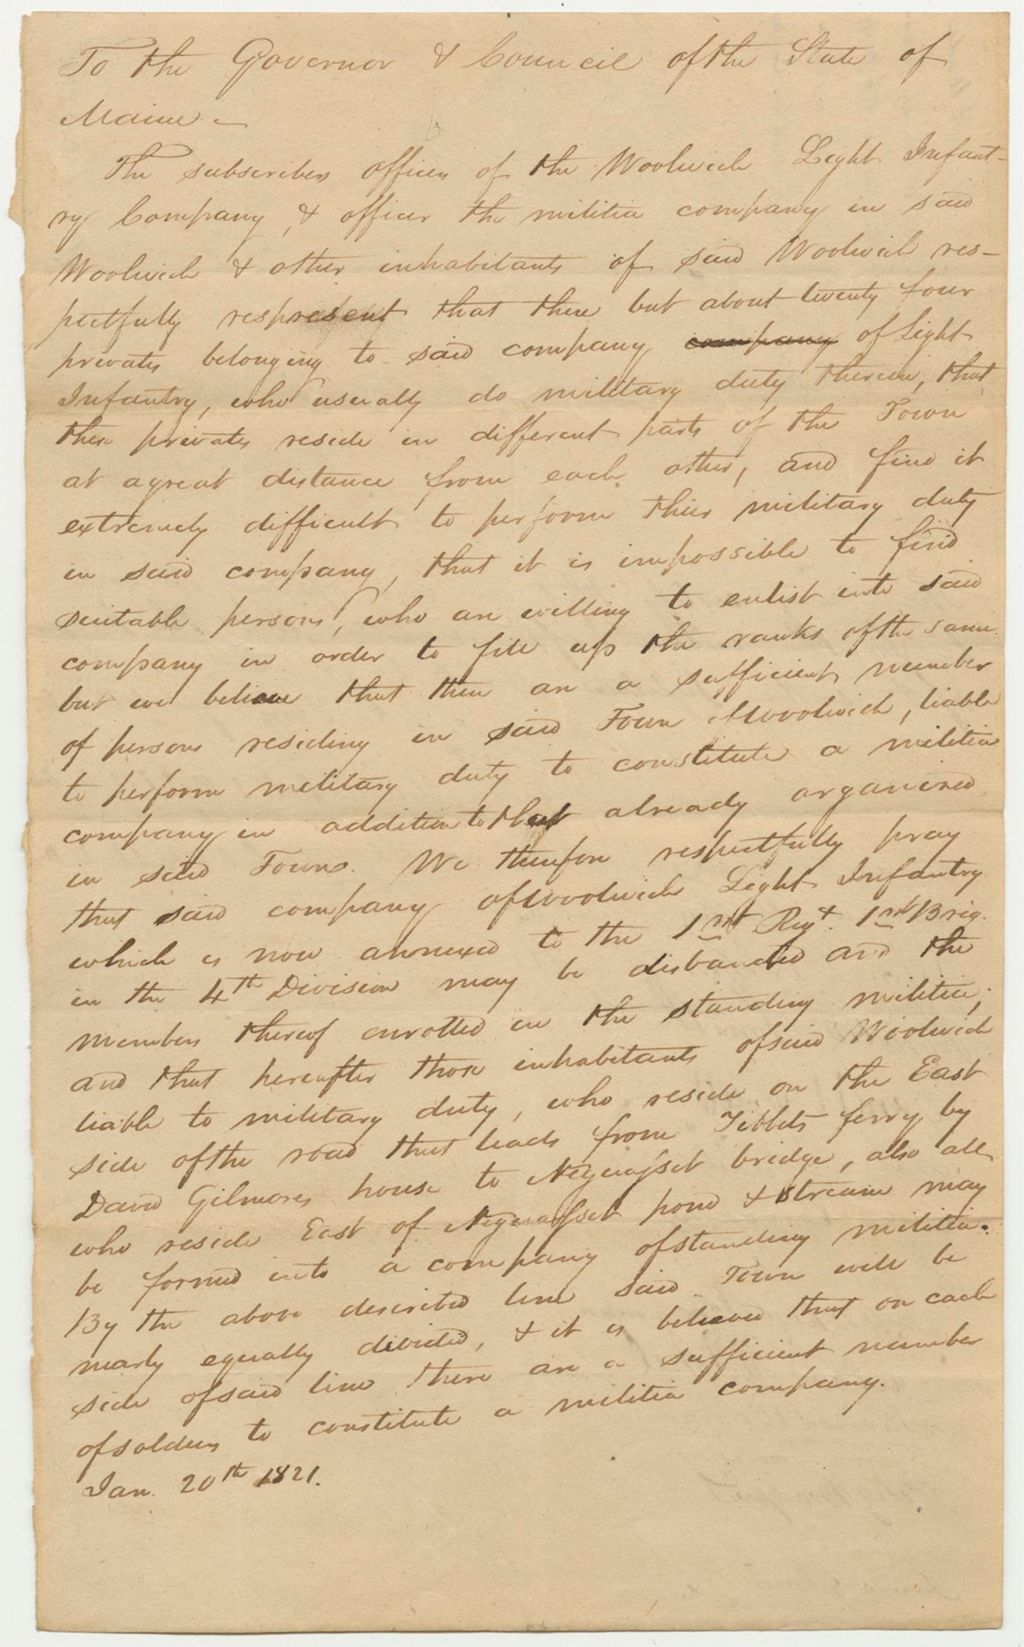 To the Governor & Council of the State of
Maine –
The subscribers officers of the Woolwich Light Infant-
ry Company, & officers the militia company in said
Woolwich & other inhabitants of said Woolwich res-
pectfully respresent that there but about twenty four
privates belonging to said company company of Light
Infantry, who usually do military duty therein, that
these privates reside in different parts of the Town
at a great distance from each other, and find it
extremely difficult to perform their military duty
in said company, that it is impossible to find
suitable persons, who are willing to enlist into said
company in order to fill up the ranks of the same
but we believe that there are a sufficient number
of persons residing in said Town of Woolwich, liable
to perform military duty to constitute a militia
company in addition to that already organized
in said Town. We therefore respectfully pray
that said company of Woolwich Light Infantry
which is now annexed to the 1st Regt. 1st Brig.
in the 4th Division may be disbanded and the
members thereof enrolled in the standing militia;
and that hereafter those inhabitants of said Woolwich
liable to military duty, who reside on the East
side of the road that leads from Tibbets ferry, by
David Gilmores house to Neguasset bridge, also all
who reside East of Neguasset pond & stream may
be formed into a company of standing militia.
By the above described line said Town will be
nearly equally divided, & it is believed that on each
side of said line there are a sufficient number
of soldiers to constitute a militia company.
Jan. 20th 1821.